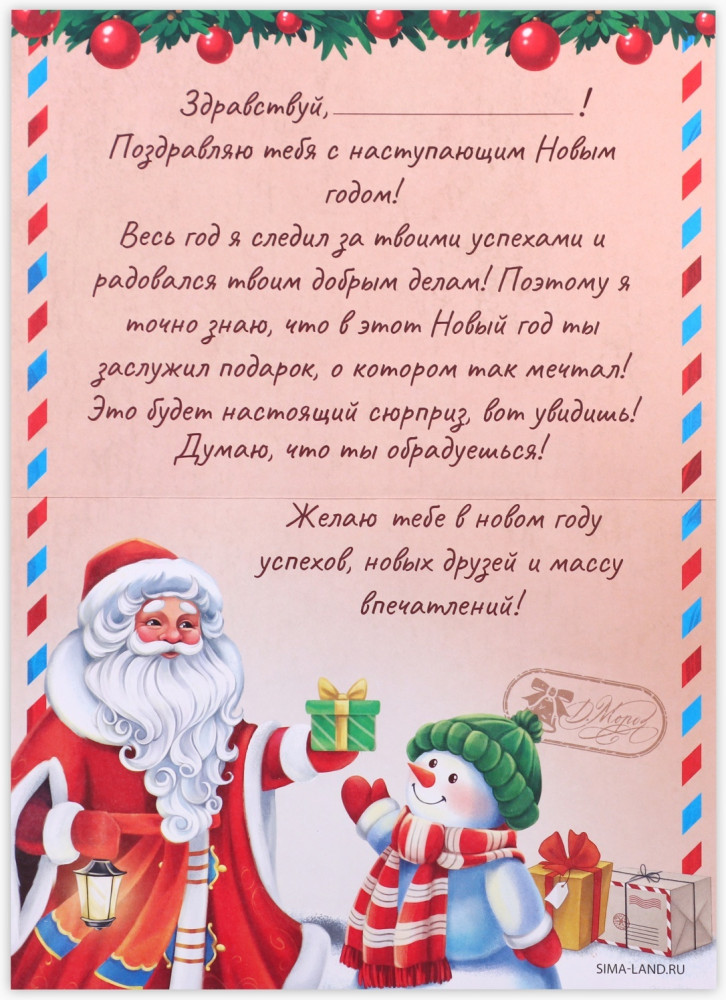 Здравствуй,____________________!
Поздравляю тебя с наступающим Новым
годом!
Весь год я следил за твоими успехами и
радовался твоим добрым делам! Поэтому я
точно знаю, что в этот Новый год ты
заслужил подарок, о котором так мечтал!
Это будет настоящий сюрприз, вот увидишь!
Думаю, что ты обрадуешься!
Желаю тебе в новом году
успехов, новых друзей и массу
впечатлений!
Д.Мороз
SIMA-LAND.RU